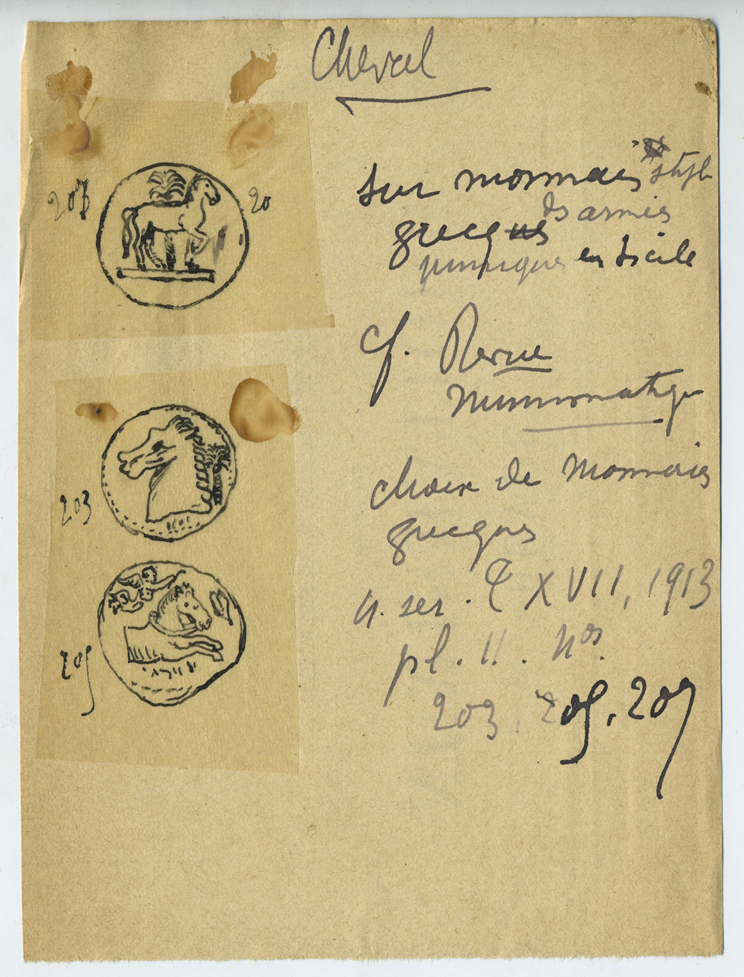 Cheval
sur monnaies style
grecques des armées
puniques en Sicile
cf. Revue
Numismatique
choix de monnaies
grecques
4. ser. T XVII, 1913
pl. II. Nos
203, 205, 207
203
20
203
205